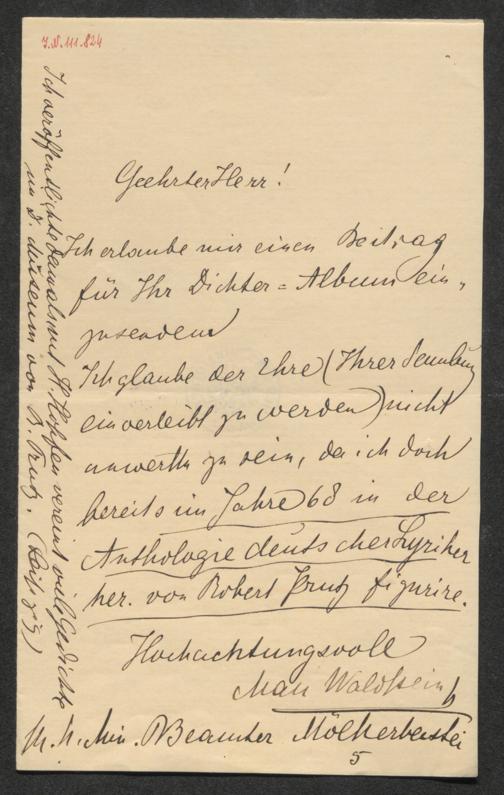 I.N. 111.824
Geehrter Herr!
Ich erlaube mir einen Beitrag
für Ihr Dichter=Album ein-
zusenden
Ich glaube der Ehre (Ihrer Sammlung
einverleibt zu werden) nicht
unwerth zu sein, da ich doch
bereits im Jahre 68 in der
Anthologie deutscher Lyriker
her. von Robert Prutz figurire.
Hochachtungsvoll
Max Waldstein
Min. Beamter Mölkerbastei
5
Ich veröffentlichte damals mit H. Hopfen vereint viele Gedichte
im D. Museum von R. Prutz.